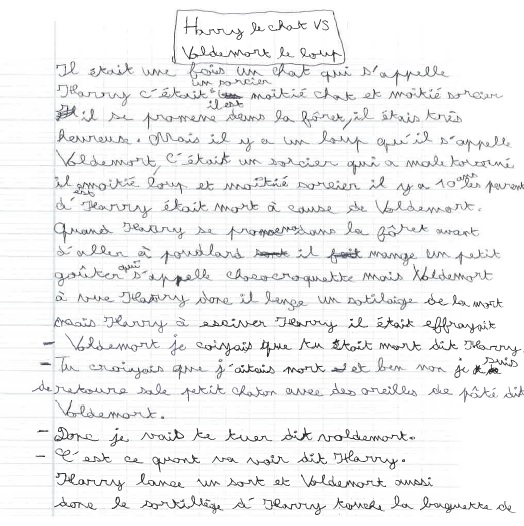 Harry le chat VS
Voldemort le loup
Il était une fois un chat qui s'appelle
un sorcier
Harry c'était moitié chat et moitié sorcier
il est
il se promene dans la fôret, il étais très
heureuse. Mais il y a un loup qu'il s'appelle
Voldemort, C'était un sorcier qui a male tourné
il est moitié loup et moitié sorcier il y a 10 ans les parent
d'Harry était mort à cause de Voldemort.
Quand Harry se promene dans la fôret avant
d'aller à poudlard il mange un petit
goûter qui s'appelle chococroquette mais Voldemort
à vue Harry donc il lence un sotilaige de la mort
mais Harry à esciver Harry il était effrayait
- Voldemort je coiyais que tu était mort dit Harry.
- Tu croiyais que j'aitais mort et ben non je suis
de retoure sale petit chaton avec des oreilles de pâté dit
Voldemort.
- Donc je vait te tuer dit voldemort.
- C'est ce quont va voir dit Harry.
Harry lance un sort et Voldemort aussi
donc le sortillège d'Harry touche la baguette de